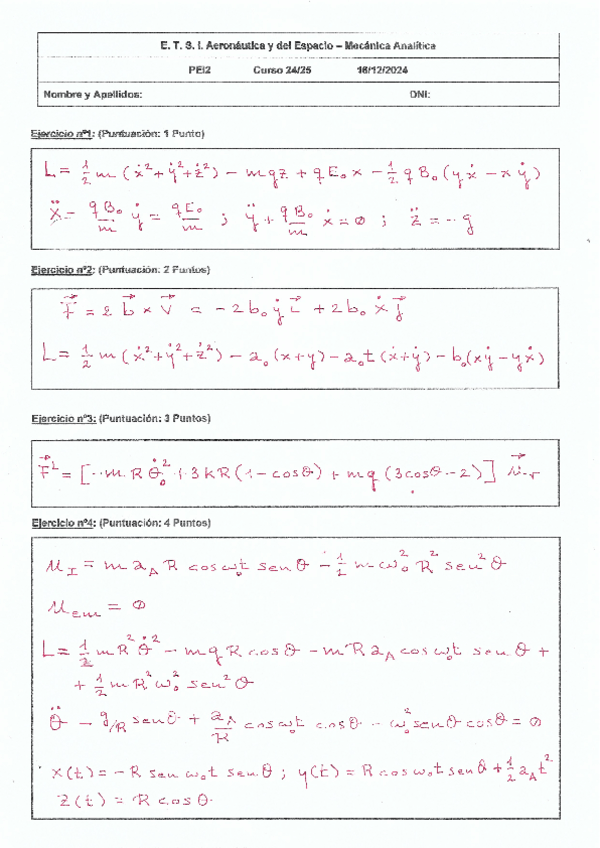 E. T. S. I. Aeronáutica y del Espacio – Mecánica Analítica
PEI2 Curso 24/25 16/12/2024
Nombre y Apellidos: DNI:
Ejercicio nº1: (Puntuación: 1 Punto)
L = 1/2 m (ẋ² + ẏ² + ż²) - mgz + qE₀x - 1/2 qB₀(yẋ - xẏ)
ẍ - qB₀/m ẏ = qE₀/m ; ÿ + qB₀/m ẋ = 0 ; z̈ = -g
Ejercicio nº2: (Puntuación: 2 Puntos)
F⃗ = 2 b⃗ × v⃗ = -2b₀ẏ i⃗ + 2b₀ẋ j⃗
L = 1/2 m (ẋ² + ẏ² + ż²) - a₀(x+y) - a₀t(ẋ+ẏ) - b₀(xẏ - yẋ)
Ejercicio nº3: (Puntuación: 3 Puntos)
F⃗ᴸ = [-mRθ̇₀² + 3kR(1-cosθ) + mg(3cosθ-2)] u⃗r
Ejercicio nº4: (Puntuación: 4 Puntos)
u_I = m a_A R cosω₀t senθ - 1/2 mω₀²R² sen²θ
u_em = 0
L = 1/2 mR²θ̇² - mgR cosθ - mRa_A cosω₀t senθ +
+ 1/2 mR²ω₀² sen²θ
θ̈ - g/R senθ + a_A/R cosω₀t cosθ - ω₀² senθ cosθ = 0
x(t) = -R senω₀t senθ ; y(t) = R cosω₀t senθ + 1/2 a_A t²
z(t) = R cosθ